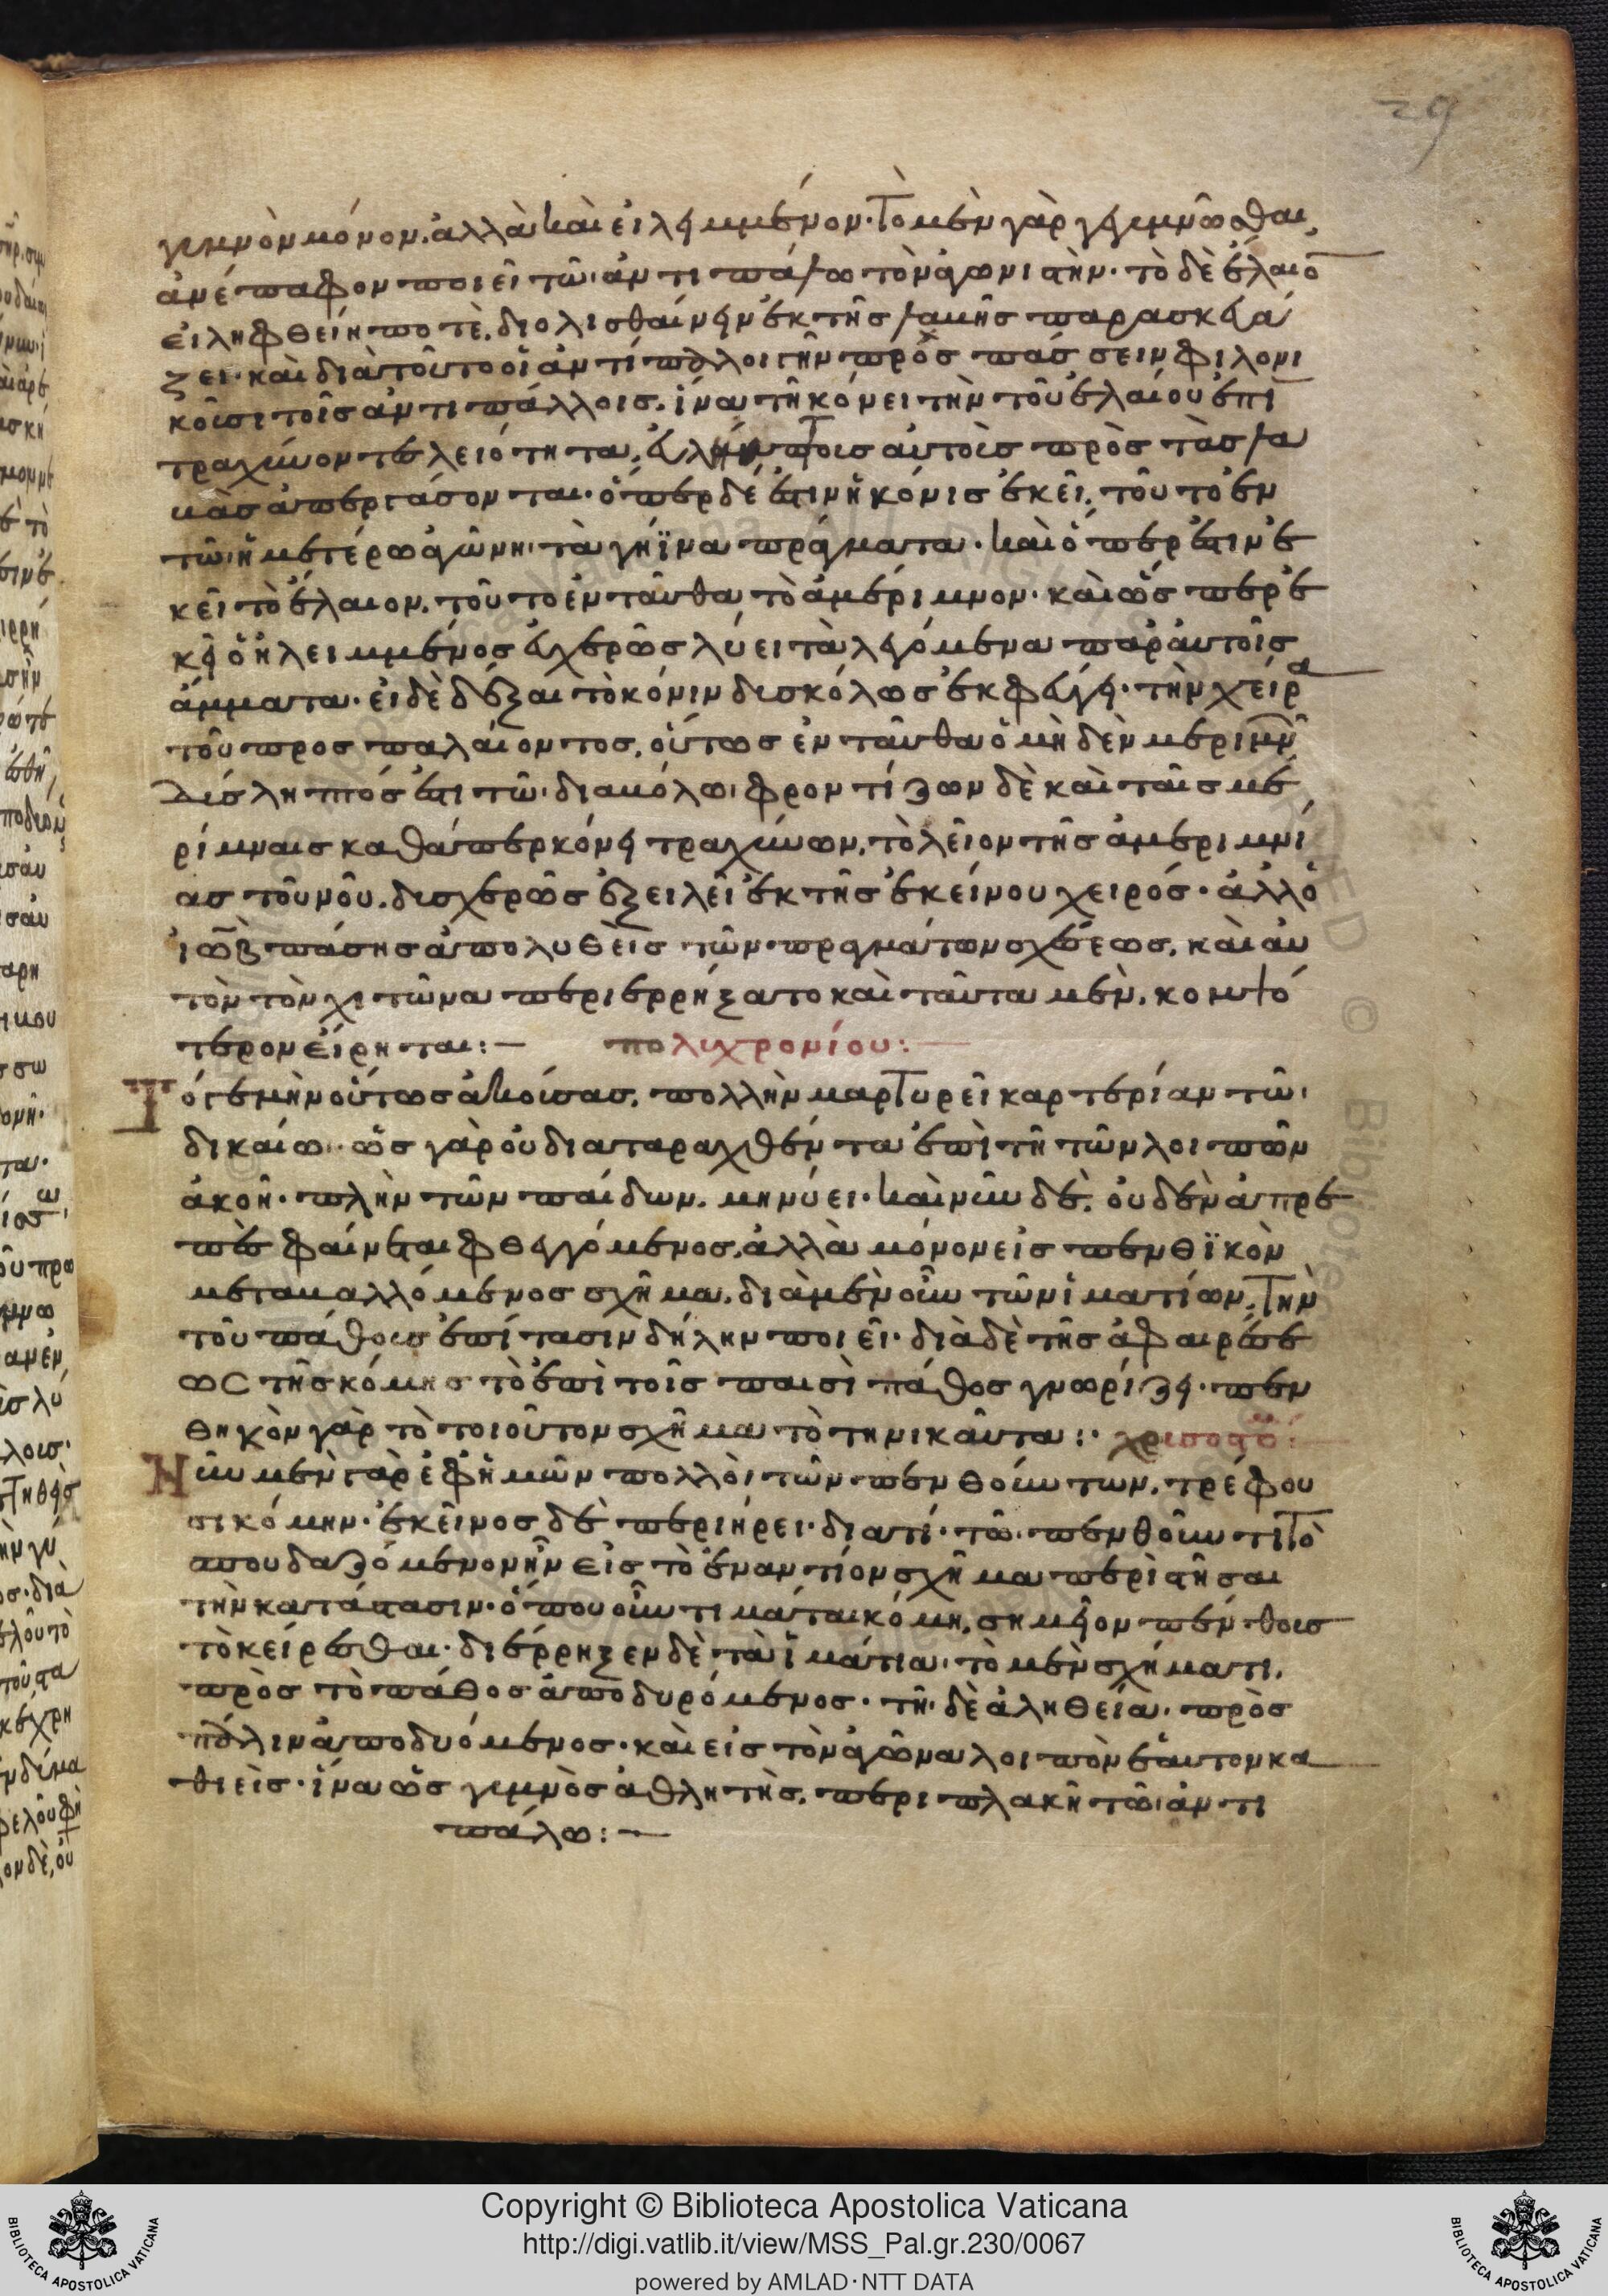 29
γυμνὸν μόνον. ἀλλὰ καὶ εἰληλιμμένον. Τὸ μὲν γὰρ γεγυμνῶσθαι,
ἀνέπαφον ποιεῖ τῶ ἀντιπάλω τὸν ἀγωνιστήν. τὸ δὲ ἔλαιον
διολισθαίνειν ἐκ τῆς λαβῆς παρασκευά
ζει. καὶ διὰ τοῦτο οἱ ἀντίπαλοι τὴν πρὸς πάσσειν φιλονι
κοῦσι τοῖς ἀντιπάλλοις. ἵνα τῆ κόνει τὴν τοῦ ἐλαίου ἐπι
τραχύνοντες λειότητα, αὐτοῖς πρὸς τὰς λα
βὰς ἀπεργάσονται. ὅπερ δέ ἐστιν ἡ κόνις ἐκεῖ, τοῦτο ἐν
τῶ ἡμετέρω ἀγῶνι τὰ γήϊνα πράγματα. καὶ ὅπερ ἐστὶν ἐ
κεῖ τὸ ἔλαιον. τοῦτο ἐνταῦθα τὸ ἀμέριμνον. καὶ ὥσπερ ἐ
κεῖ ὁ ἠλειμμένος εὐχερῶς λύει τὰ λεγόμενα παρ' αὐτοῖς
ἅμματα. εἰ δὲ δέξαιτο κόνιν δυσκόλως ἐκφεύγει τὴν χεῖρα
τοῦ προσπαλαίοντος, οὕτως ἐνταῦθα ὁ μηδὲν μεριμνῶν
δύσληπτός ἐστι τῶ διαβόλω. φροντίζων δὲ καὶ ταῖς με
ρίμναις καθάπερ κόνει τραχύνων, τὸ λεῖον τῆς ἀμεριμνί
ας τοῦ νοῦ. δυσχερῶς ἐξειλεῖ ἐκ τῆς ἐκείνου χειρός. ἀλλ' ὁ
ἰὼβ πάσης ἀπολυθεὶς τῶν πραγμάτων σχέσεως, καὶ αὐ
τὸν τὸν χιτῶνα περιερρήξατο καὶ ταῦτα μὲν, κομψό
τερον εἴρηται:—   πολυχρονίου:
Τό γε μὴν οὕτως ἀκούσας, πολλὴν μαρτυρεῖ καρτερίαν τῶ
δικαίω. ὡς γὰρ οὐ διαταραχθέντα ἐπὶ τῆ τῶν λοιπῶν
ἀκοῆ. πλὴν τῶν παίδων. μηνύει. καὶ νῦν δὲ, οὐδὲν ἀπρε
πὲς φαίνεται φθεγγόμενος. ἀλλὰ μόνον εἰς πενθϊκὸν
μεταβαλλόμενος σχῆμα. διὰ μὲν οὖν τῶν ἱματίων, τὴν
τοῦ πάθους ἐπίτασιν δήλην ποιεῖ. διὰ δὲ τῆς ἀφαιρέσε
ως τῆς κόμης τὸ ἐπὶ τοῖς παισὶ πάθος γνωρίζει. πεν
θηκὸν γὰρ τὸ τοιοῦτον σχῆμα τὸ τηνικαῦτα:· χρυσοστο:
Νῦν μὲν γὰρ ἐφ' ἡμῶν πολλοὶ τῶν πενθούντων, τρέφου
σι κόμην. ἐκεῖνος δὲ περιήρει. διατί. τῶ πενθοῦντι τὸ
σπουδαζόμενον ἦν εἰς τὸ ἐναντίον σχῆμα περιστῆσαι
τὴν κατάστασιν. ὅπου οὖν τιμᾶται κόμη, σημεῖον πένθους
τὸ κείρεσθαι. διέρρηξεν δὲ τὰ ἱμάτια. τὸ μὲν σχήματι,
πρὸς τὸ πάθος ἀποδυρόμενος. τῆ δὲ ἀληθεία. πρὸς
πάλιν ἀποδυόμενος. καὶ εἰς τὸν ἀγῶνα λοιπὸν ἑαυτον κα
θιεὶς. ἵνα ὡς γυμνὸς ἀθλητὴς, περιπλακῆ τῶ ἀντι
πάλω:—
Copyright © Biblioteca Apostolica Vaticana
http://digi.vatlib.it/view/MSS_Pal.gr.230/0067
powered by AMLAD·NTT DATA